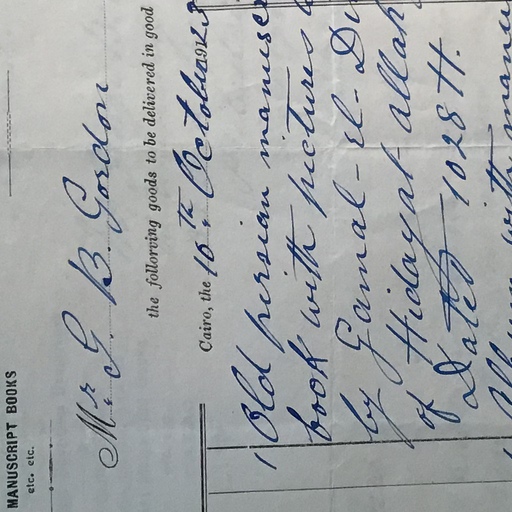 MANUSCRIPT BOOKS
etc. etc.
Mr. G. B. Gordon
the follorving goods to be delivered in good
Cairo, the 10th October 1923
1 Old persian manusc
book with pictures
by Gamal-el-D
of Hidayat allah
Dated 1028 H.
Album with manu